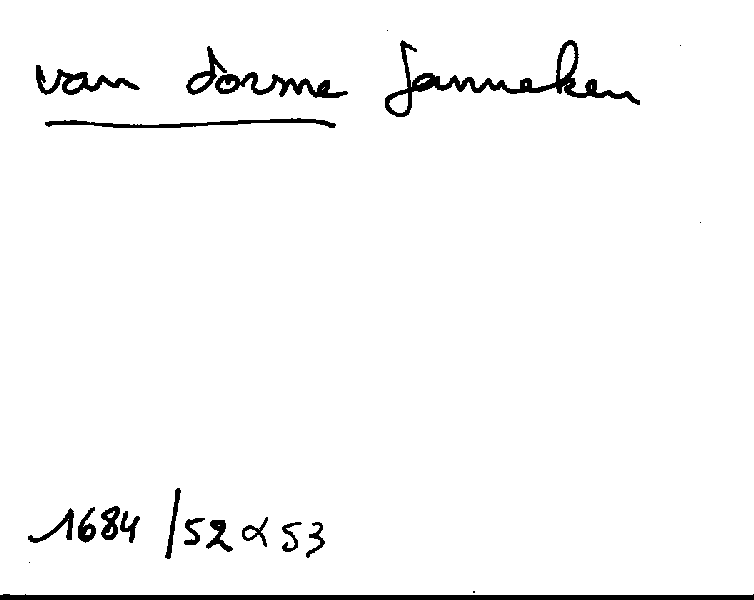 van dorme Janneken
1684 / 52 & 53